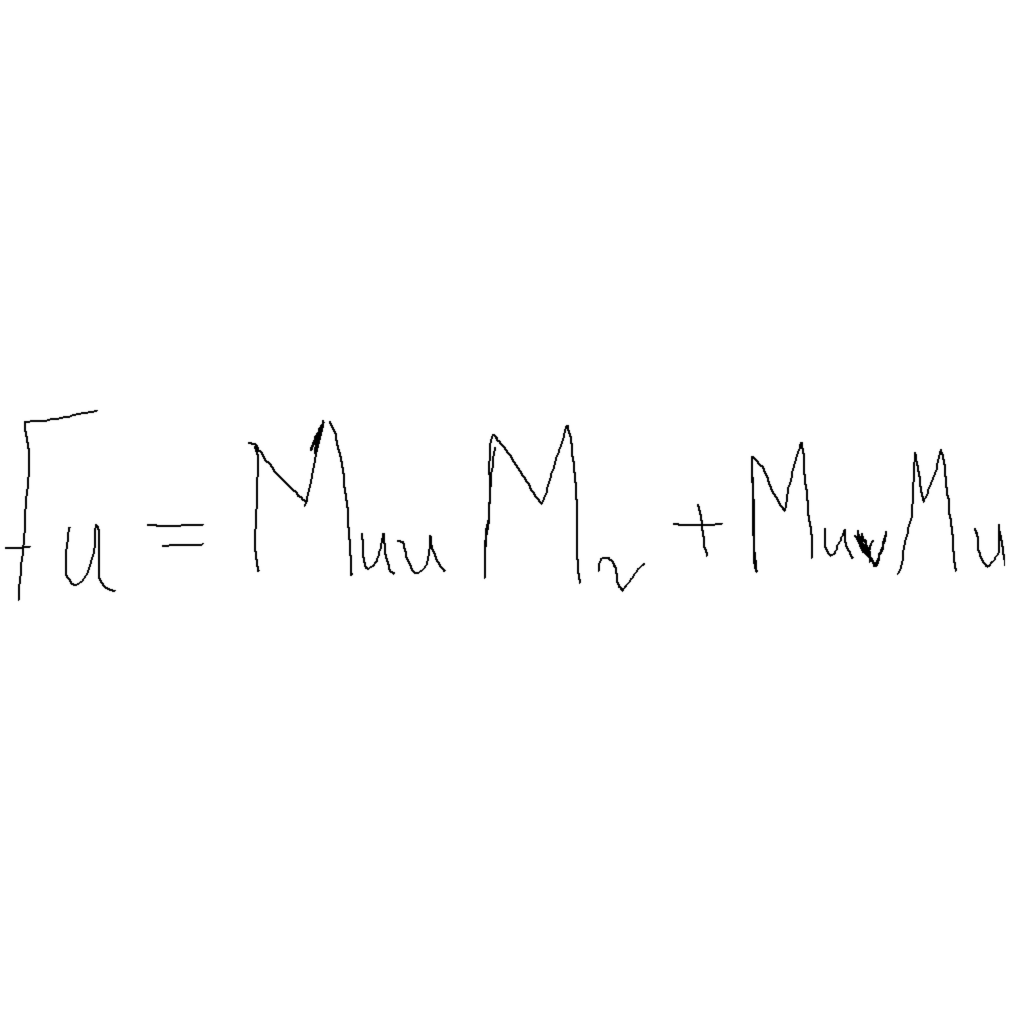 F_u = M_{uu} M_v + M_{uv} M_u